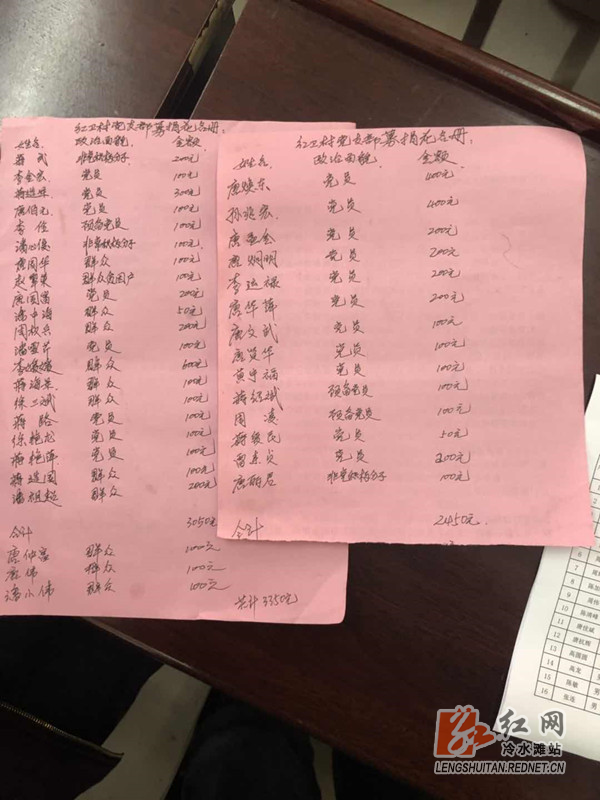 红卫村党支部募捐花名册:
姓名 政治面貌 金额
蒋武 非党积极分子 200元
李金宏 党员 100元
蒋进生 党员 300元
唐伯元 党员 100元
李俭 预备党员 100元
潘沁俊 非党积极分子 100元
唐周华 群众 100元
群众贫困户 100元
唐国富 党员 200元
潘中海 群众 50元
周放兵 群众 200元
潘雪芹 党员 100元
李媛媛 群众 600元
蒋海英 群众 100元
徐工斌 群众 100元
蒋路 党员 100元
徐艳龙 党员 100元
蒋艳萍 党员 100元
蒋送国 群众 100元
潘祖超 群众 200元
合计 3050元
唐仲富 群众 100元
唐伟 群众 100元
潘小伟 群众 100元
共计3350元
红卫村党支部募捐花名册
姓名 政治面貌 金额
唐焕东 党员 400元
孙兆宏 党员 400元
唐亚金 党员 200元
唐炯明 党员 200元
李运禄 党员 200元
唐华萍 党员 200元
唐文武 党员 100元
唐贤华 党员 100元
黄中福 党员 100元
蒋绍斌 预备党员 100元
周凌 预备党员 100元
蒋发民 党员 50元
雷素贞 党员 200元
唐丽君 非党积极分子 100元
合计 2450元
6
7
8 陈加
9
10 陈湘峰
11 唐技斌
12 唐钰辉
13 高圆圆
14 高龙 男
15 陈敏 男
16 张连 男
红网
冷水滩站
LENGSHUITAN.REDNET.CN